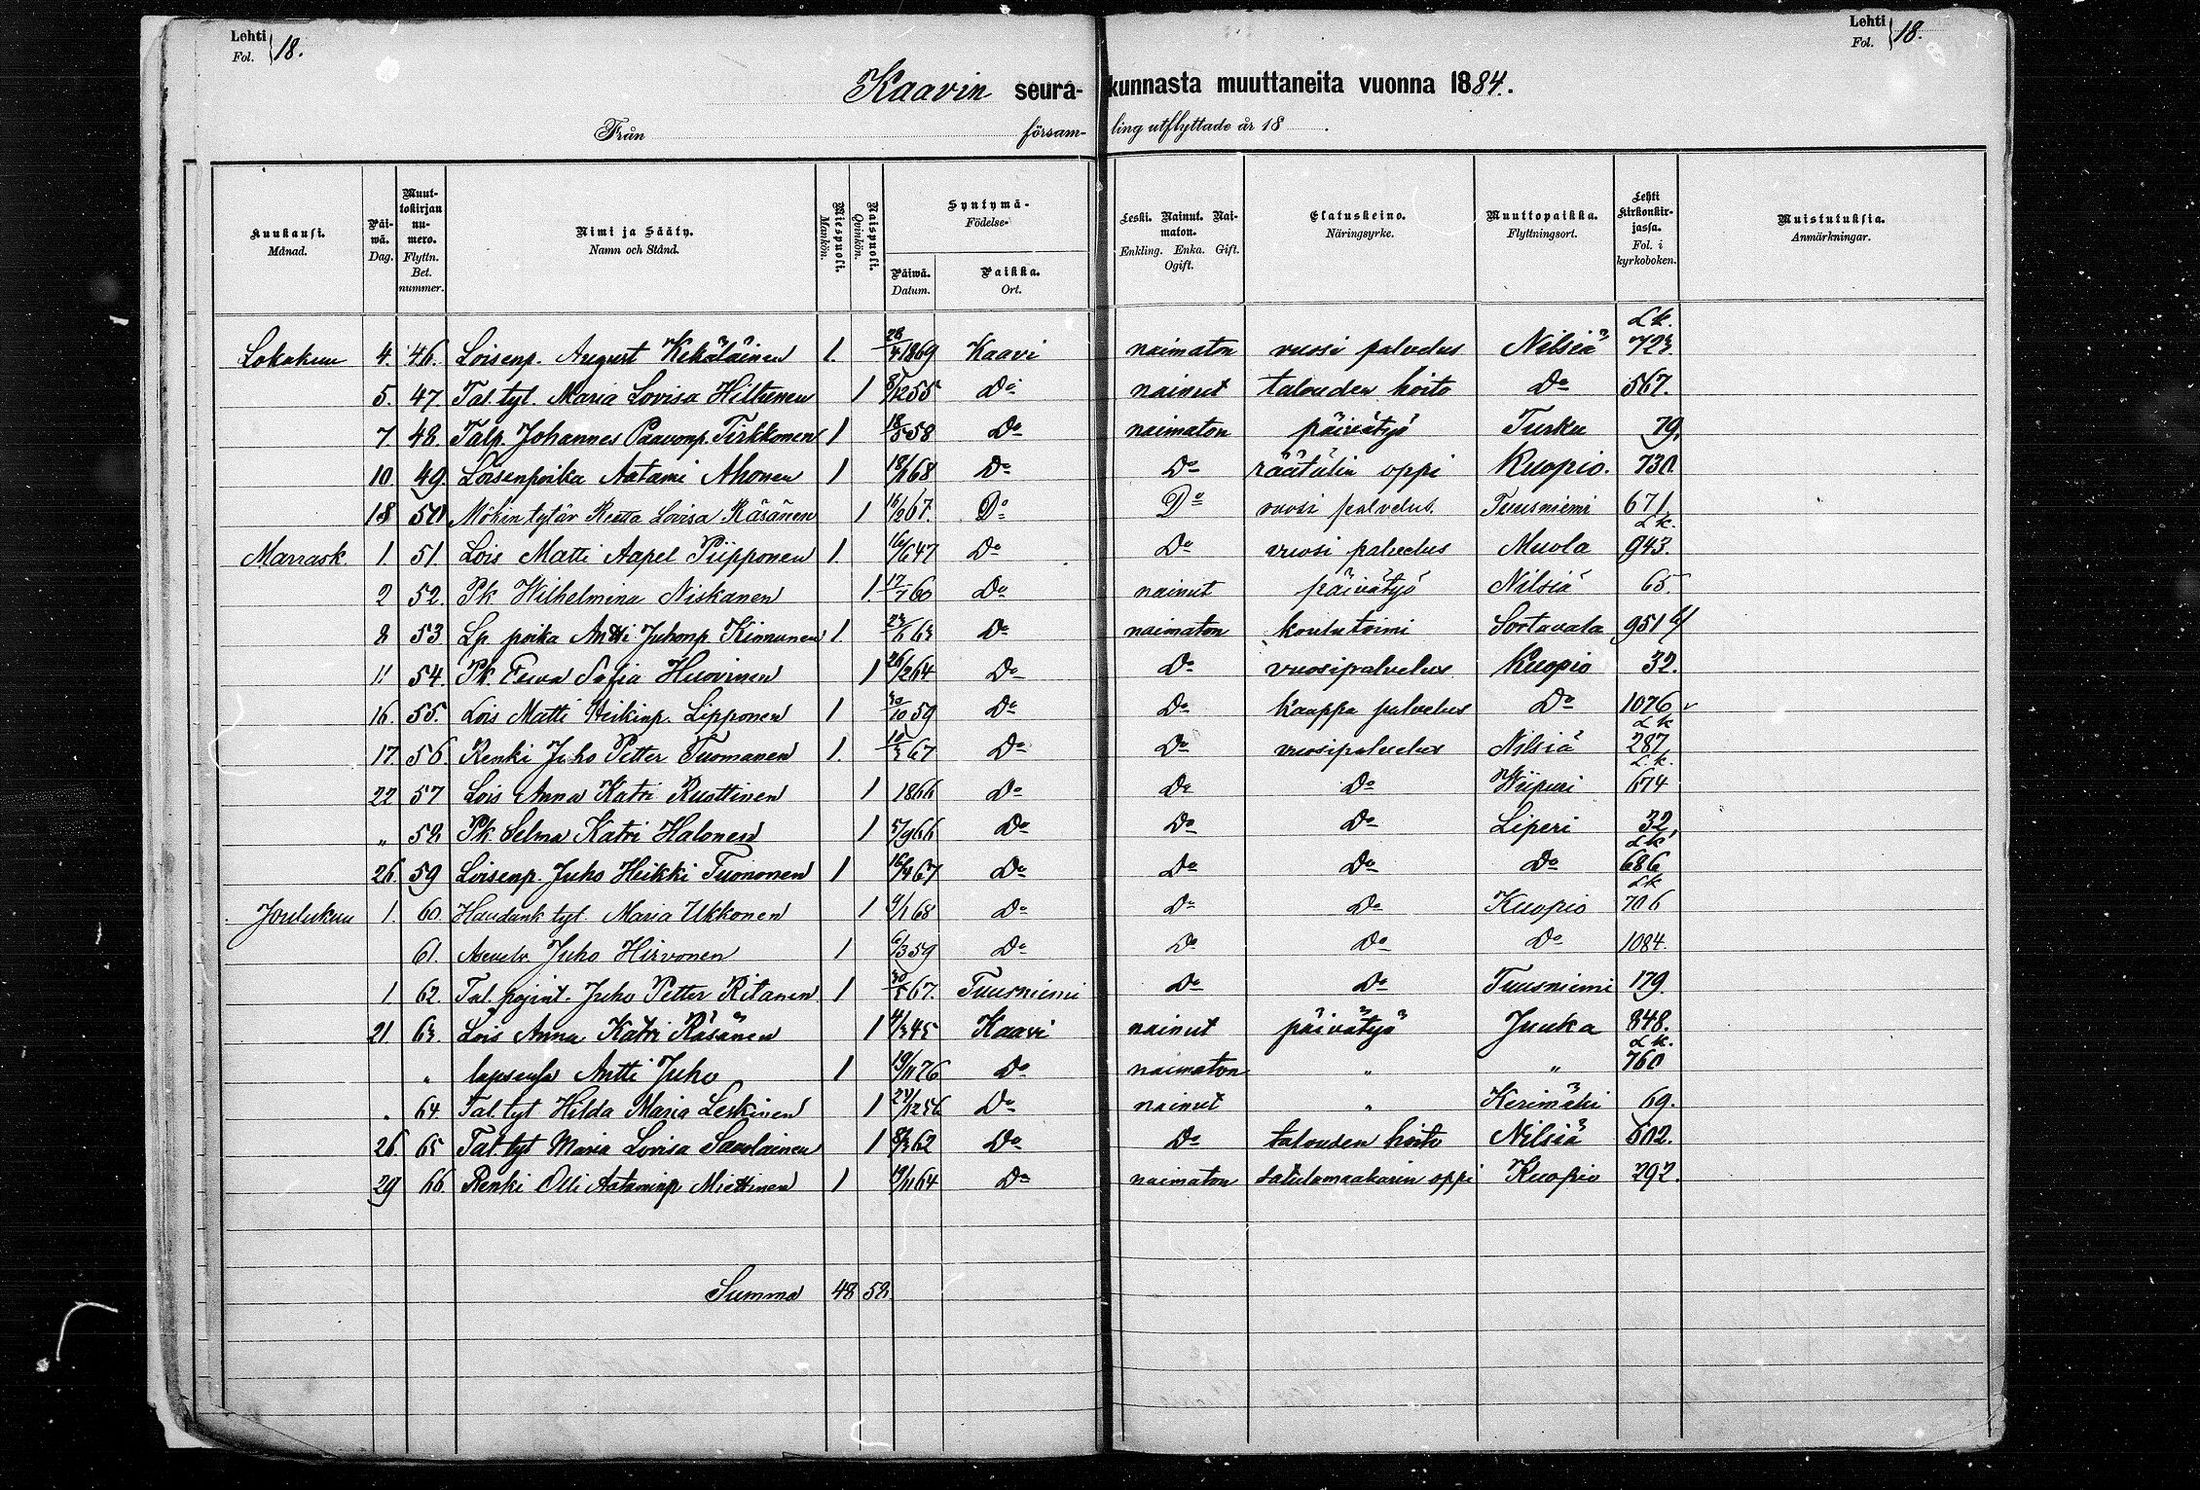 Lehti Fol. 18.
Lehti Fol. 18.
Kaavin seurakunnasta muuttaneita vuonna 1884.
Från församling utflyttade år 18 .
Kuukausi. Månad.
Päiwä. Dag.
Muuttokirjan numero. Flyttn. Bet. nummer.
Nimi ja Sääty. Namn och Stånd.
Miespuoli. Mankön.
Naispuoli. Qvinkön.
Syntymä- Födelse-
Päiwä. Datum.
Paikka. Ort.
Leski. Nainut. Naimaton. Enkling. Enka. Gift. Ogift.
Elatuskeino. Näringsyrke.
Muuttopaikka. Flyttningsort.
Lehti kirkonkirjassa. Fol. i kyrkoboken.
Muistutuksia. Anmärkningar.
Lokakuu 4. 46. Loisenp. August Kekäläinen 1. 28/4 1869 Kaavi naimaton vuosi palvelus Nilsiä Lk. 723.
5. 47. Tal. tyt. Maria Lovisa Hiltunen 1 8/12 55 Do nainut talouden hoito Do 567.
7 48. Talp. Johannes Paavonp. Tirkkonen 1 18/5 58 Do naimaton päivätyö Turku 79.
10. 49. Loisenpoika Aatami Ahonen 1 18/1 68 Do Do räätälin oppi Kuopio. 730.
18 50 Mökin tytär Reetta Lovisa Räsänen 1 16/2 67. Do Do vuosi palvelus. Tuusniemi 671.
Marrask. 1. 51. Lois Matti Aapel Piipponen 1. 16/6 47 Do Do vuosi palvelus Muola Lk. 943.
2 52. Pk Wilhelmina Niskanen 1. 17/1 60 Do nainut päivätyö Nilsiä 65.
8 53 Lp poika Antti Juhonp Kinnunen 1. 23/6 63 Do naimaton koulutoimi Sortavala 951
11 54. Pk Eeva Sofia Huovinen 1 26/2 64 Do Do vuosipalvelus Kuopio 32.
16. 55. Lois Matti Heikinp. Lipponen 1 30/10 59 Do Do kauppa palvelus Do 1076
17. 56. Renki Juho Petter Tuomanen 1. 10/3 67 Do Do vuosipalvelus Nilsiä Lk 287
22 57 Lois Anna Katri Ruottinen 1 1866 Do Do Do Wiipuri L.k. 674
" 58 Pk Selma Katri Halonen 1 5/9 66 Do Do Do Liperi 32.
26. 59 Loisenp. Juho Heikki Tuononen 1 16/4 67 Do Do Do Do Lk 686
Joulukuu 1. 60. tyt. Maria Ukkonen 1 9/1 68 Do Do Do Kuopio Lk 706
61. Juho Hirvonen 1 6/3 59 Do Do Do Do 1084.
1 62. Tal. pojint. Juho Petter Ritanen 1 30/5 67. Tuusniemi Do Do Tuusniemi 179.
21 63. Lois Anna Katri Räsänen 1 4/3 45 Kaavi nainut päivätyö Juuka 848.
" lapsensa Antti Juho 1 19/11 76 Do naimaton " " Lk. 760
" 64 Tal. tyt Hilda Maria Leskinen 1 24/12 56 Do nainut " Kerimäki 69.
26. 65 Tal. tyt Maria Lovisa Savolainen 1 8/3 62 Do Do talouden hoito Nilsiä 602.
29 66. Renki Olli Aataminp Miettinen 1 19/11 64 Do naimaton satulamaakarin oppi Kuopio 292.
Summa 48 52.